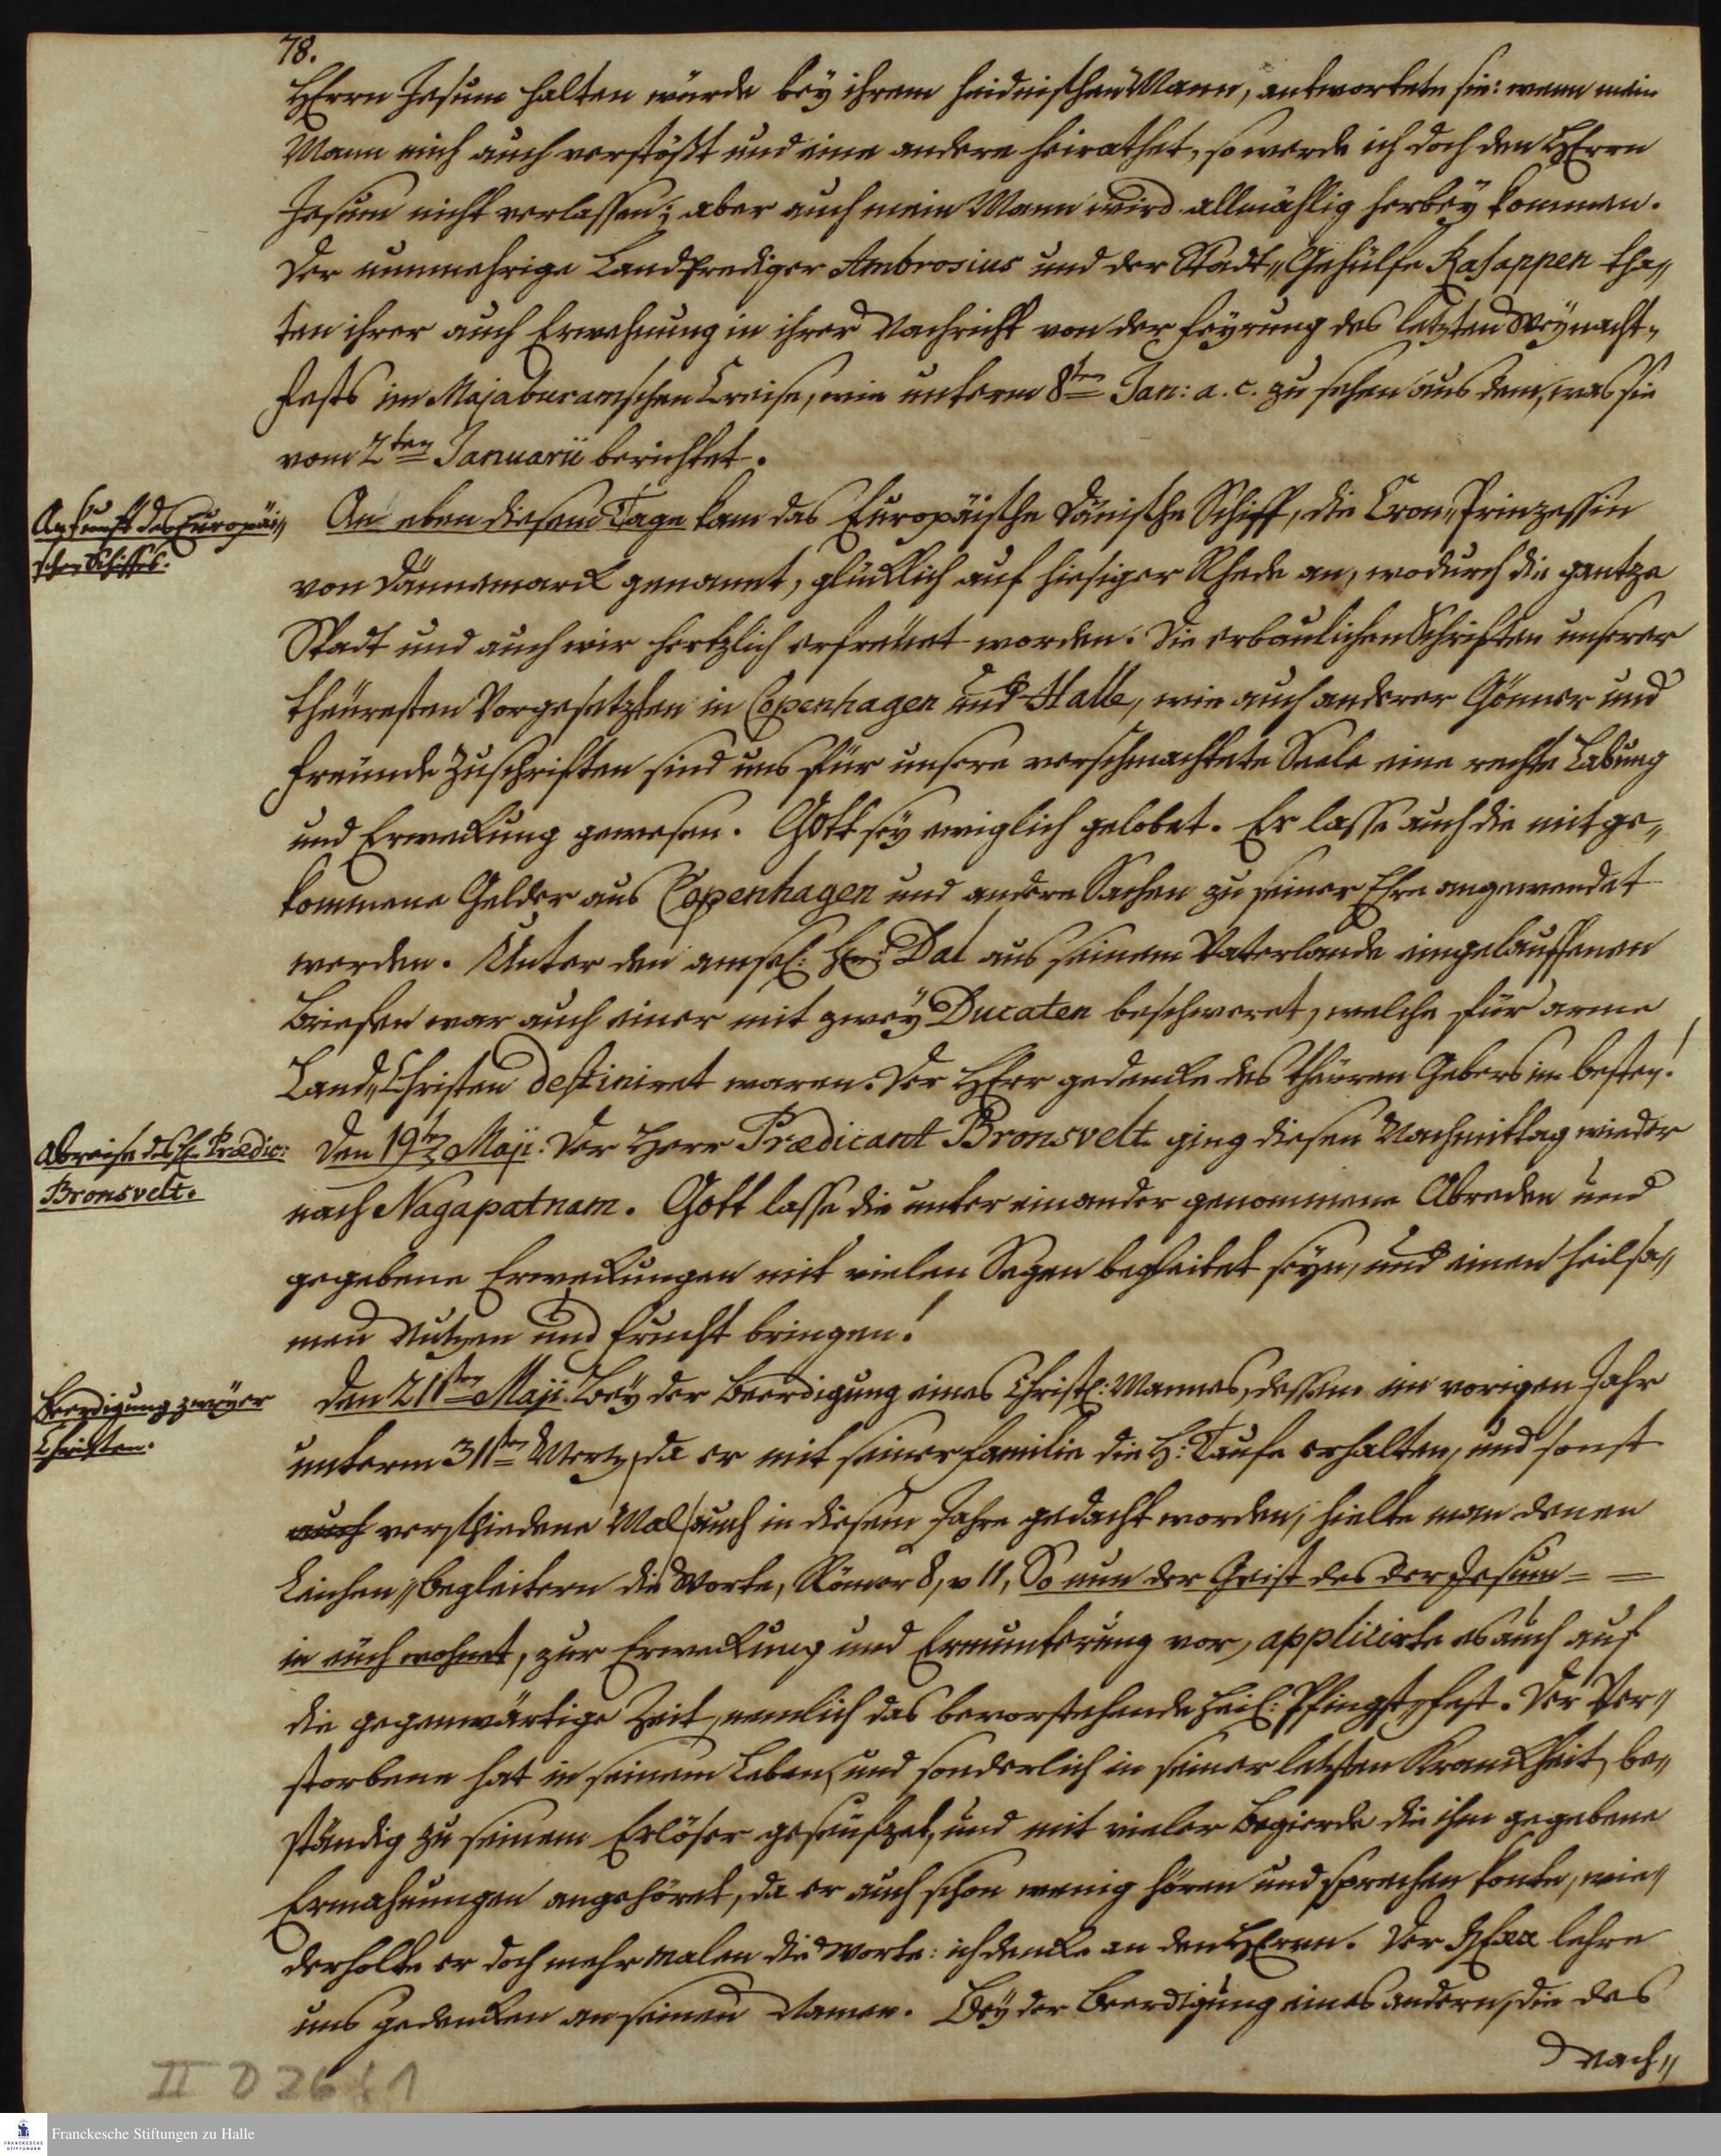 78.
HErrn Jesum halten würde bey ihrem heidnischen Mann, antwortete sie: wenn mein
Mann mich auch verstößt und eine andere heirathet, so werde ich doch den HErrn
Jesum nicht verlassen; aber auch mein Mann wird allmählig herbey kommen.
Der nunmehrige Landprediger Ambrosius und der Stadt„Gehülfe Rasappen tha„
ten ihrer auch Erwehnung in ihrer Nachricht von der Feyrung des letzten Weynacht„
fests im Majaburamschen Creise, wie unterm 8ten Jan: a. c. zu sehen aus dem, was sie
vom 2ten Januarii berichtet.
Ankunft des Europäi„
schen Schiffes.
An eben diesem Tage kam das Europäische Dänische Schiff, die Cron„Prinzessin
von Dännemarck genannt, glücklich auf hiesiger Rhede an, wodurch die gantze
Stadt und auch wir hertzlich erfreuet worden. Die erbaulichen Schriften unserer
theuresten Vorgesetzten in Copenhagen und Halle, wie auch anderer Gönner und
Freunde Zuschriften sind uns für unsere verschmachtete Seele eine rechte Labung
und Erweckung gewesen. Gott sey ewiglich gelobet. Er lasse auch die mitge„
kommene Gelder aus Copenhagen und andere Sachen zu seiner Ehre angewendet
werden. Unter den an sel: Hn: Dal aus seinem Vaterlande eingelauffenen
Briefen war auch einer mit zwey Ducaten beschweret, welche für arme
Land„Christen destiniret waren. Der HErr gedencke des theuren Gebers im besten!
Abreise des H. Prædic:
Bronsvelt.
Den 19ten Maji. Der Herr Prædicant Bronsvelt ging diesen Nachmittag wieder
nach Nagapatnam. Gott lasse die unter einander genommene Abreden und
gegebene Erweckungen mit vielen Segen begleitet seyn, und einen heilsa„
men Nutzen und Frucht bringen!
Beerdigung zweyer
Christen.
Den 21sten Maji. Bey der Beerdigung eines Christl: Mannes, dessen im vorigen Jahr
unterm 31sten Mertz, da er mit seiner Familie die H: Taufe erhalten, und sonst
auch verschiedene Mal auch in diesem Jahre gedacht worden, hielte man denen
Leichen„begleitern die Worte, Römer 8, v 11, So nun der Geist des der Jesum = =
in euch wohnet, zur Erweckung und Ermunterung vor, applicirte es auch auf
die gegenwärtige Zeit, nemlich das bevorstehende heil: Pfingst„fest. Der Ver„
storbene hat in seinem Leben, und sonderlich in seiner letzten Kranckheit, be„
ständig zu seinem Erlöser geseufzet, und mit vieler Begierde die ihm gegebene
Ermahnungen angehöret, da er auch schon wenig hören und sprechen konte, wie„
derholte er doch mehrmalen die Worte: ich dencke an den HErrn. Der HErr lehre
uns gedencken an seinen Namen. Bey der Beerdigung eines andern, die des
Nach„
II D 26:1
Franckesche Stiftungen zu Halle
FRANCKESCHE
STIFTUNGEN